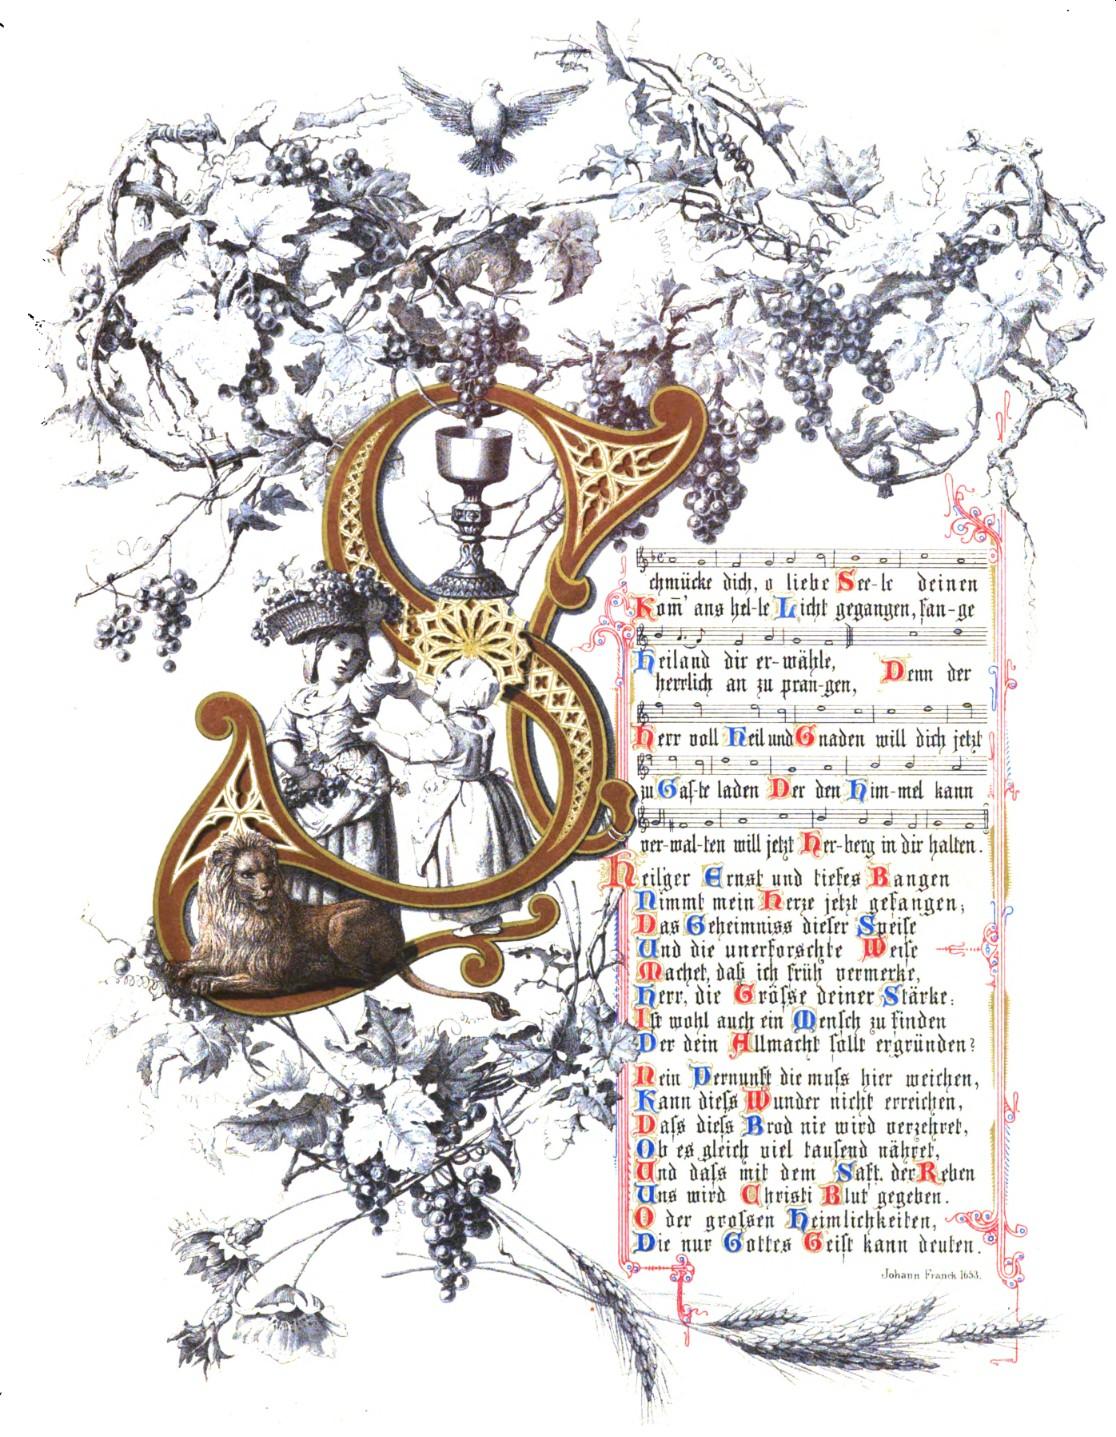 Schmücke dich, o liebe See-le deinen
Kom̃' ans hel-le Licht gegangen, fan-ge
Heiland dir er-wähle, Denn der
herrlich an zu pran-gen,
Herr voll Heil und Gnaden will dich jetzt
zu Gas-te laden Der den Him-mel kann
ver-wal-ten will jetzt Her-berg in dir halten.
Heilger Ernst und tiefes Bangen
Nimmt mein Herze jetzt gefangen;
Das Geheimniss dieser Speise
Und die unerforschte Weise
Machet, daß ich früh vermerke,
Herr, die Grösse deiner Stärke:
Ist wohl auch ein Mensch zu finden
Der dein Allmacht sollt ergründen?
Nein Vernunft die muss hier weichen,
Kann diess Wunder nicht erreichen,
Dass diess Brod nie wird verzehret,
Ob es gleich viel tausend nähret,
Und dass mit dem Saft der Reben
Uns wird Christi Blut gegeben.
O der grossen Heimlichkeiten,
Die nur Gottes Geist kann deuten.
Johann Franck 1653.